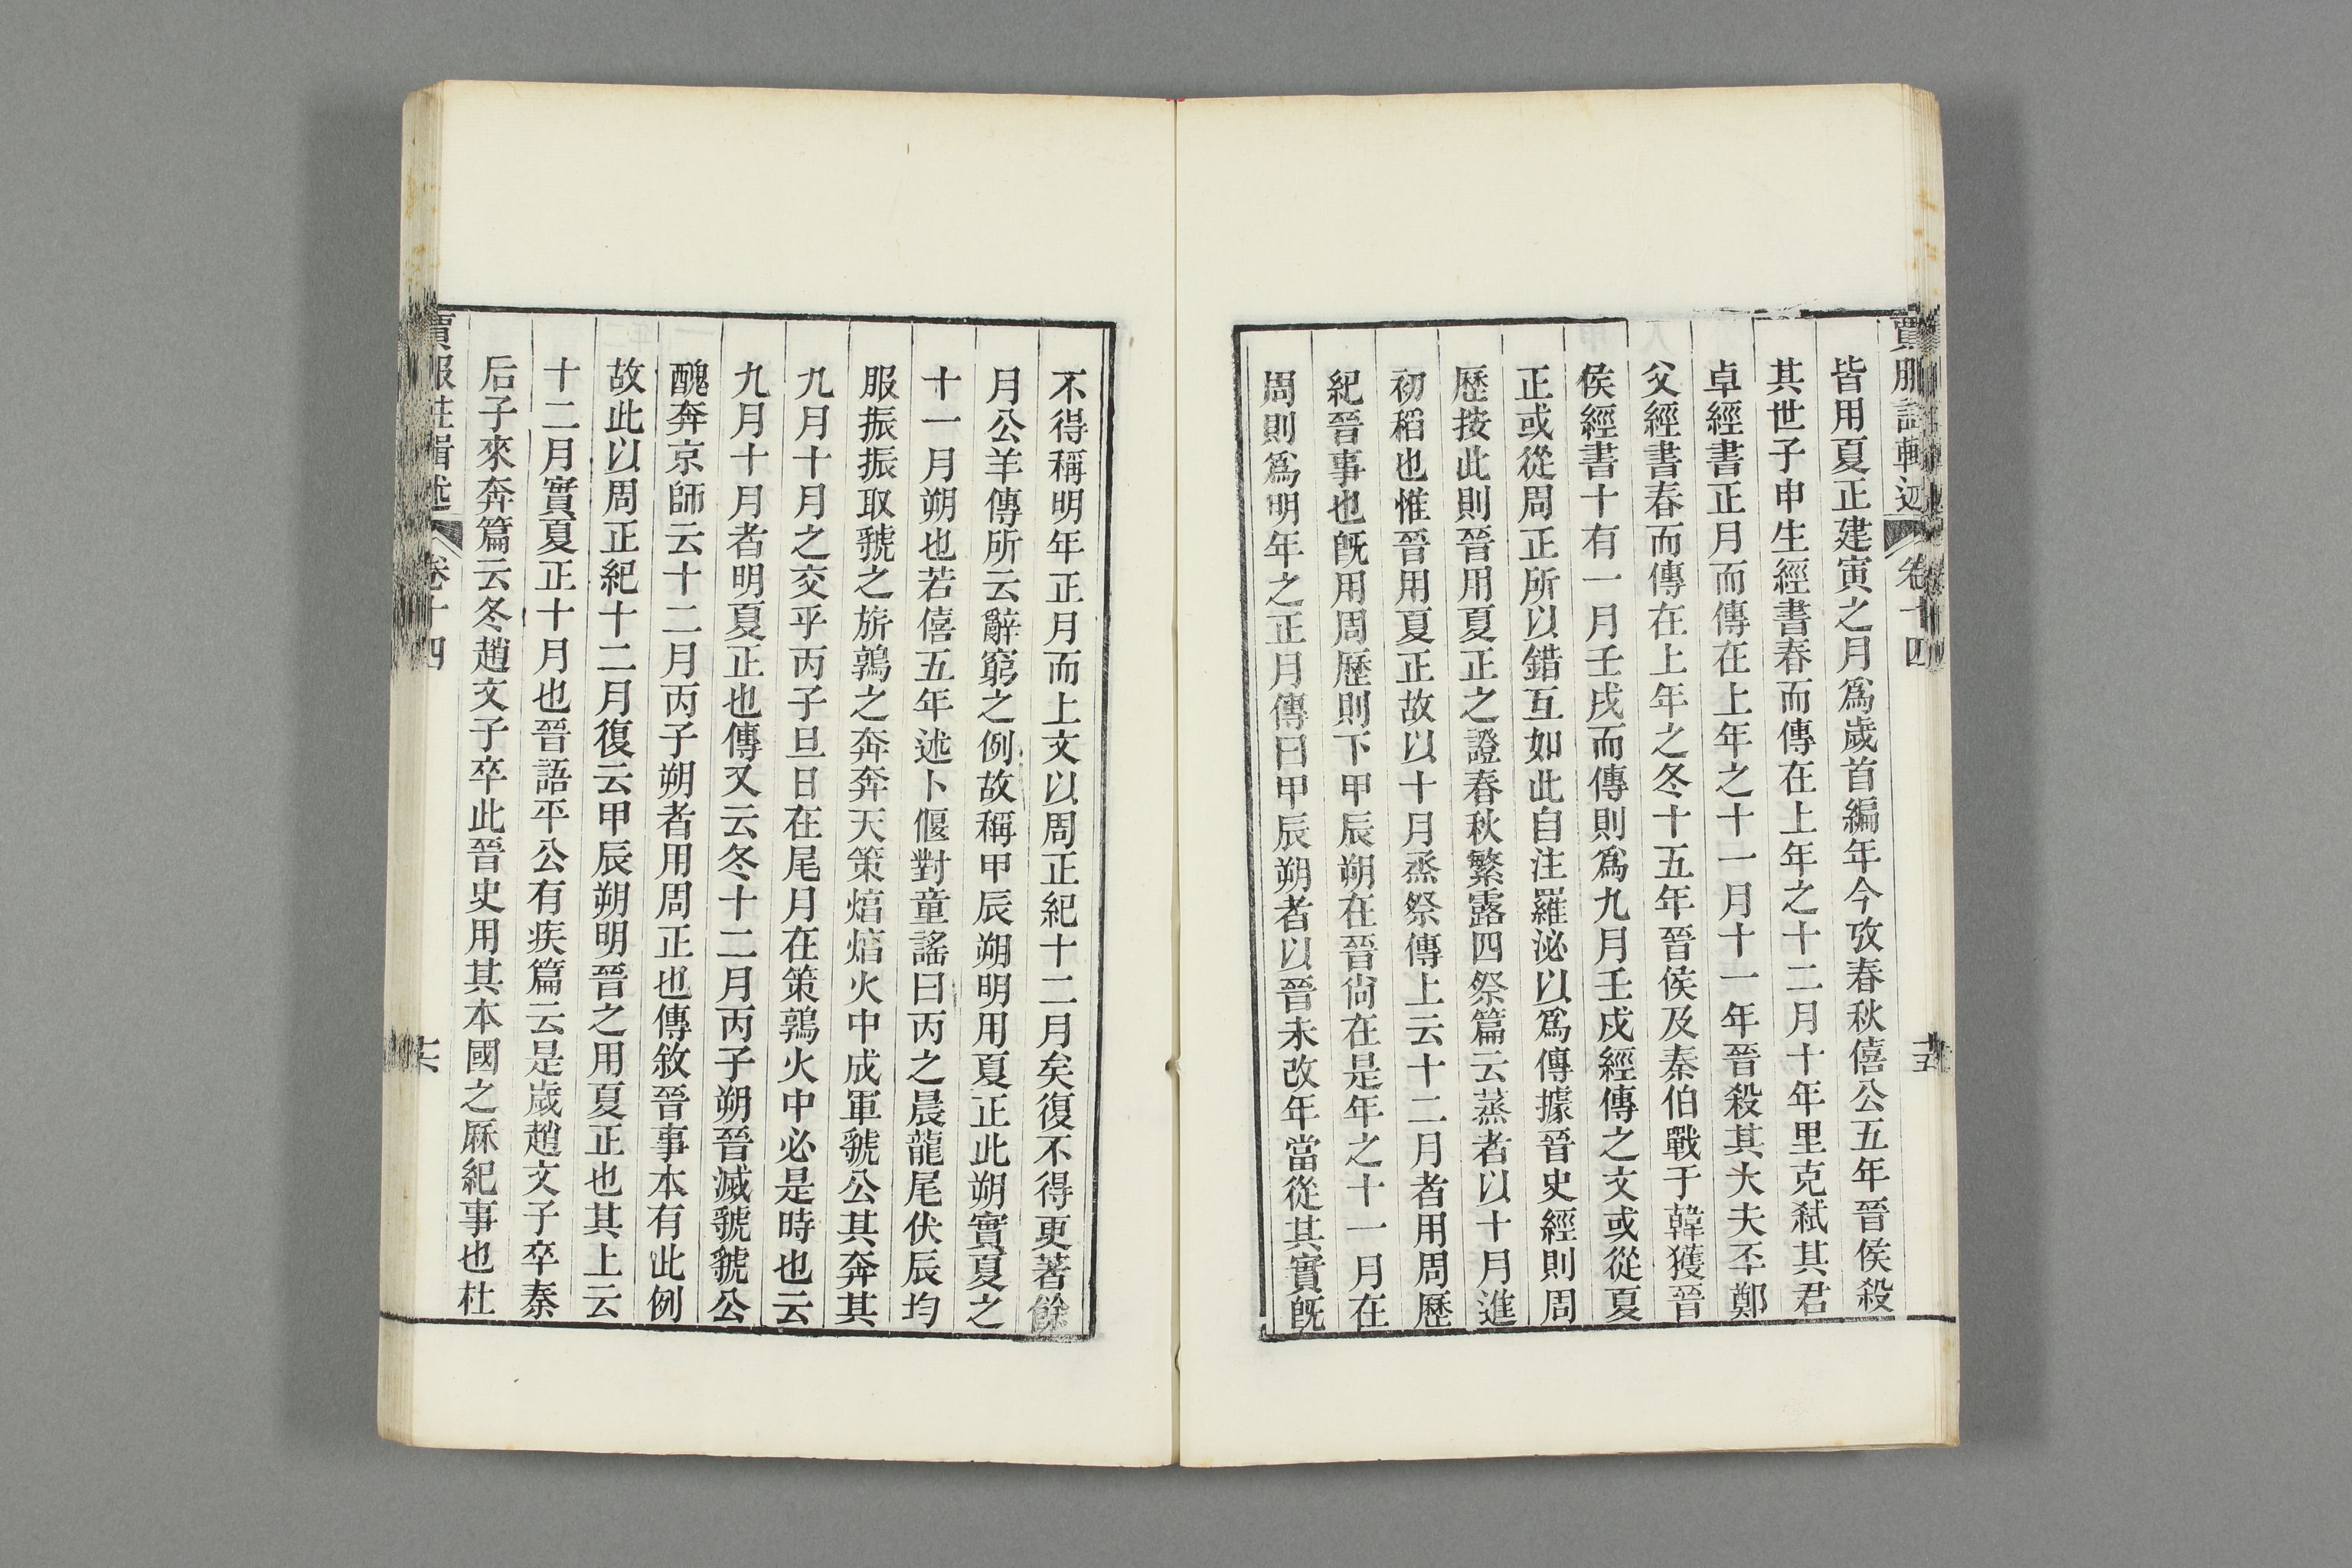 賈服註輯述 卷十四 十五
皆用夏正建寅之月爲歲首編年今攷春秋僖公五年晉侯殺
其世子申生經書春而傳在上年之十二月十年里克弒其君
卓經書正月而傳在上年之十一月十一年晉殺其大夫㔻鄭
父經書春而傳在上年之冬十五年晉侯及秦伯戰于韓獲晉
侯經書十有一月壬戌而傳則爲九月壬戌經傳之文或從夏
正或從周正所以錯互如此自注羅泌以爲傳據晉史經則周
歷按此則晉用夏正之證春秋繁露四祭篇云蒸者以十月進
初稻也惟晉用夏正故以十月烝祭傳上云十二月者用周歷
紀晉事也旣用周歷則下甲辰朔在晉尙在是年之十一月在
周則爲明年之正月傳曰甲辰朔者以晉未改年當從其實旣
不得稱明年正月而上文以周正紀十二月矣復不得更著餘
月公羊傳所云辭窮之例故稱甲辰朔明用夏正此朔實夏之
十一月朔也若僖五年述卜偃對童謠曰丙之晨龍尾伏辰均
服振振取虢之旂鶉之奔奔天策焞焞火中成軍虢公其奔其
九月十月之交乎丙子旦日在尾月在策鶉火中必是時也云
九月十月者明夏正也傳又云冬十二月丙子朔晉滅虢虢公
醜奔京師云十二月丙子朔者用周正也傳敘晉事本有此例
故此以周正紀十二月復云甲辰朔明晉之用夏正也其上云
十二月實夏正十月也晉語平公有疾篇云是歲趙文子卒秦
后子來奔篇云冬趙文子卒此晉史用其本國之厤紀事也杜
賈服註輯述 卷十四